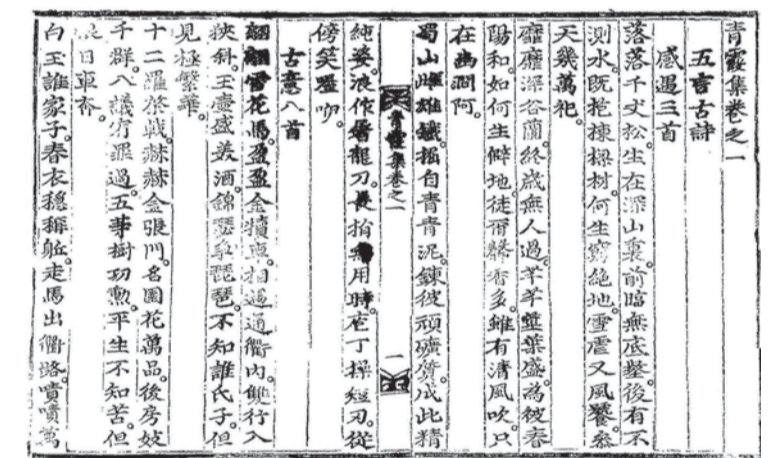 青霞集卷之一
五言古詩
感遇三首
落落千丈松。生在深山裏。前臨無底壑。後有不
測水。旣抱棟樑材。何生窮絶地。雪虐又風饕。參
天幾萬祀。
靡靡深谷蘭。終歲無人過。芊芊莖葉盛。爲彼春
陽和。如何生僻地。徒爾馨香多。雖有清風吹。只
在幽澗阿。
蜀山雌雄鐵。自青青泥。鍊彼頑礦質。成此精
青霞集卷之一 一
純姿。浪作屠龍刀。長抱無用時。庖丁操短刃。從
傍笑
古意八首
翩翩雪花馬。盈盈金犢車。相逢通衢內。雙行入
狹斜。玉壺盛美酒。錦瑟兼琵琶。不知誰氏子。但
見極繁華。
十二羅棨戟。赫赫金張門。名園花萬品。後房妓
千群。八議宥罪過。五等樹功勳。平生不知苦。但
日車奔。
白玉誰家子。春衣穩稱。走馬出衢路。嘖嘖萬